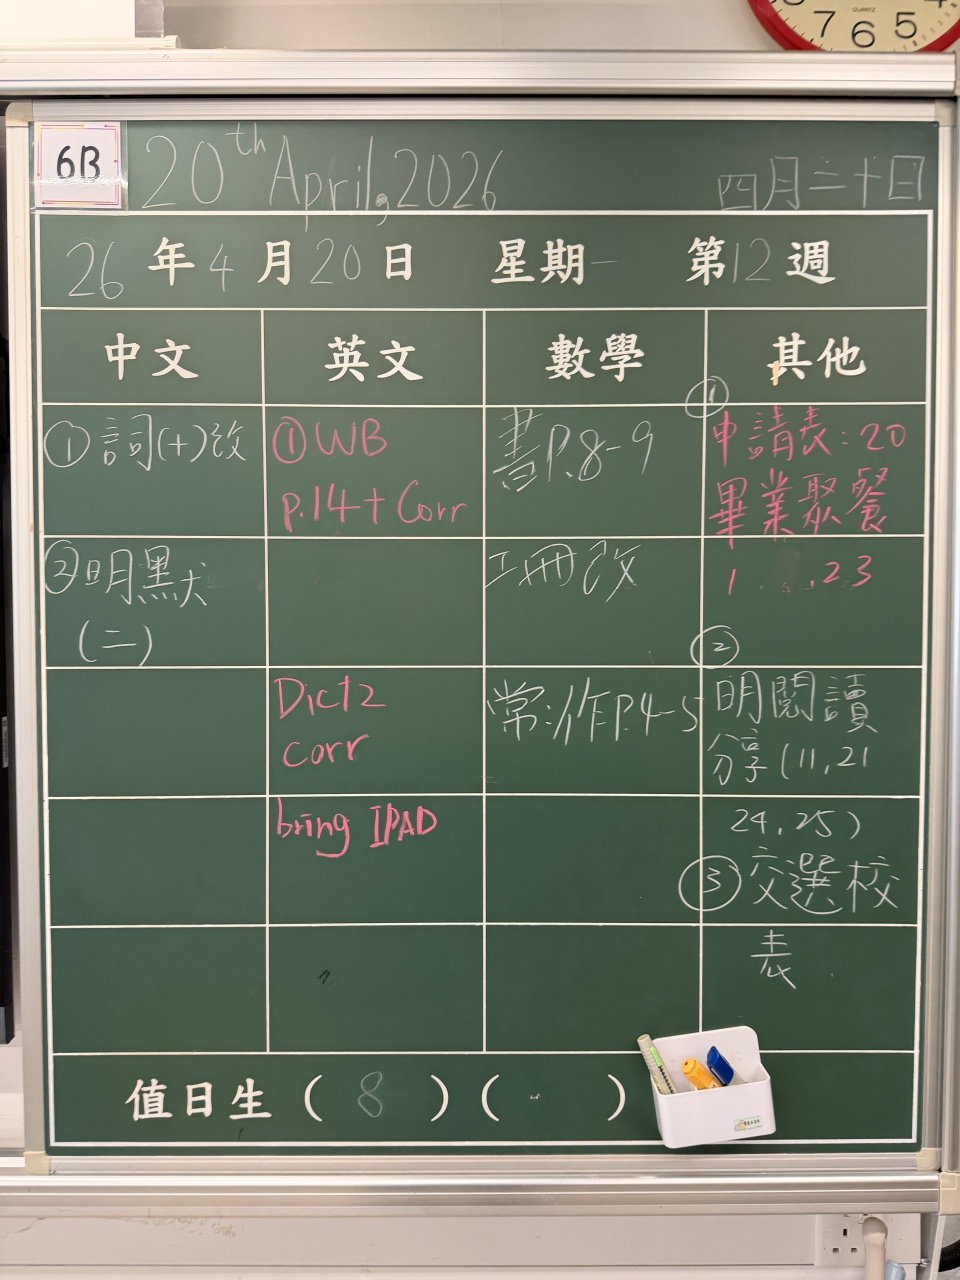 7 6 5
QUARTZ
6B
20th April, 2026
四月二十日
26年4月20日 星期一 第12週
中文 英文 數學 其他
①詞(十)改
②明默
(二)
①WB
p.14+Corr
Dict2
corr
bring IPAD
書P.8-9
工冊改
常:作P.4-5
①
申請表:20
畢業聚餐
1 .23
②
明閱讀
分享(11,21
24,25)
③交選校
表
值日生(8)( )